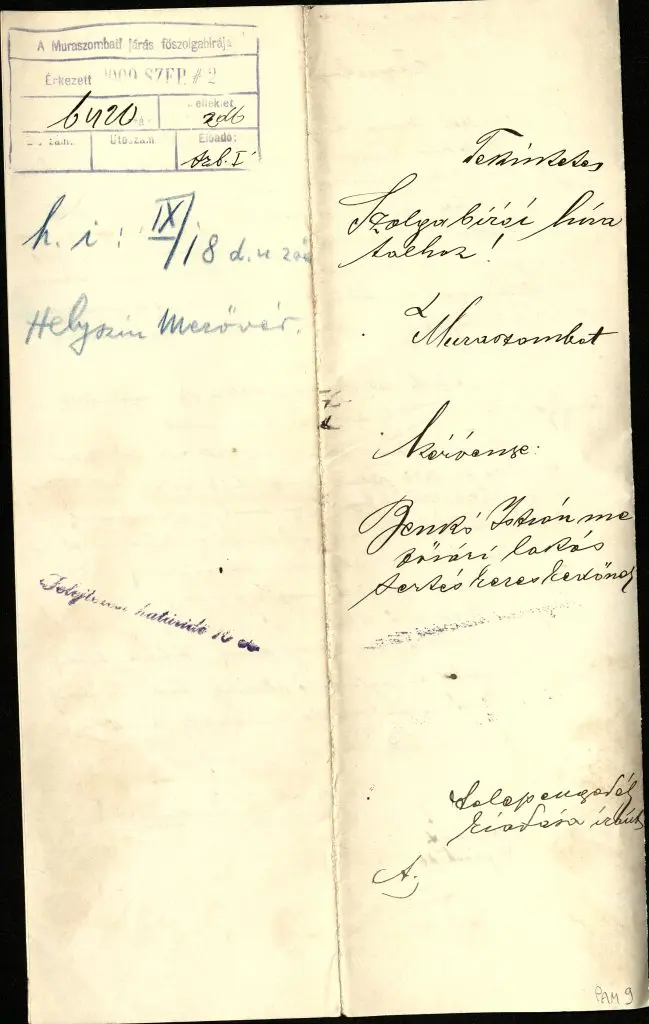 A Muraszombati járás főszolgabirája
Érkezett SZEP. # 2
6420
melléklet
2 db
Utószám
Előadó:
szb. I
h. i: IX/18 d. u
Helyszin Mezővár.
határidő
Tekintetes
Szolgabírói hiva
talhoz!
Muraszombat
Kérvénye:
Benkó István me
zővári lakós
sertés kereskedőnek
telepengedél
kiadása iránt
A.
PAM 9